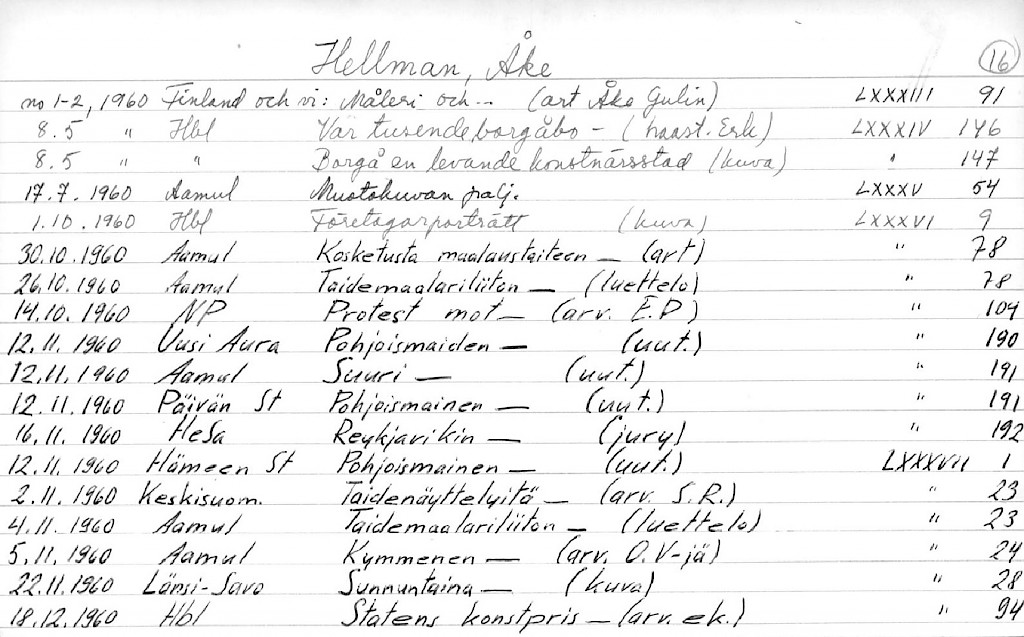 Hellman, Åke 16
no 1-2, 1960 Finland och vi: Måleri och... (art Åke Gulin) LXXXIII 91
8.5 " Hbl Vår tusende borgåbo - (haast. Erk) LXXXIV 146
8.5 " " Borgå en levande konstnärsstad (kuva) " 147
17.7. 1960 Aamul Muotokuvan palj. LXXXV 54
1.10.1960 Hbl Företagarporträtt (kuva) LXXXVI 9
30.10.1960 Aamul Kosketusta maalaustaiteen — (art) " 78
26.10.1960 Aamul Taidemaalariliiton — (luettelo) " 78
14.10.1960 NP Protest mot — (arv. E.P) " 104
12.11.1960 Uusi Aura Pohjoismaiden — (uut.) " 190
12.11.1960 Aamul Suuri — (uut.) " 191
12.11.1960 Päivän St Pohjoismainen — (uut.) " 191
16.11.1960 HeSa Reykjavikin — (jury) " 192
12.11.1960 Hämeen St Pohjoismainen — (uut.) LXXXVII 1
2.11.1960 Keskisuom. Taidenäyttelyitä — (arv. S.R.) " 23
4.11.1960 Aamul Taidemaalariliiton — (luettelo) " 23
5.11.1960 Aamul Kymmenen — (arv. O.V-jä) " 24
22.11.1960 Länsi-Savo Sunnuntaina — (kuva) " 28
18.12.1960 Hbl Statens konstpris — (arv. ek.) " 94